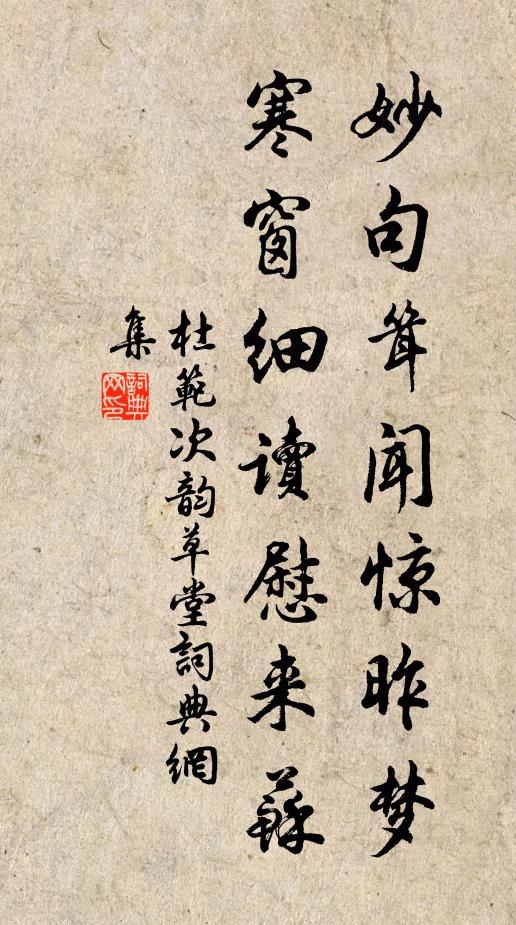 妙句耸闻惊昨梦
寒窗细读慰来蘇
杜範次韵草堂詞典網
集
詞典
网印